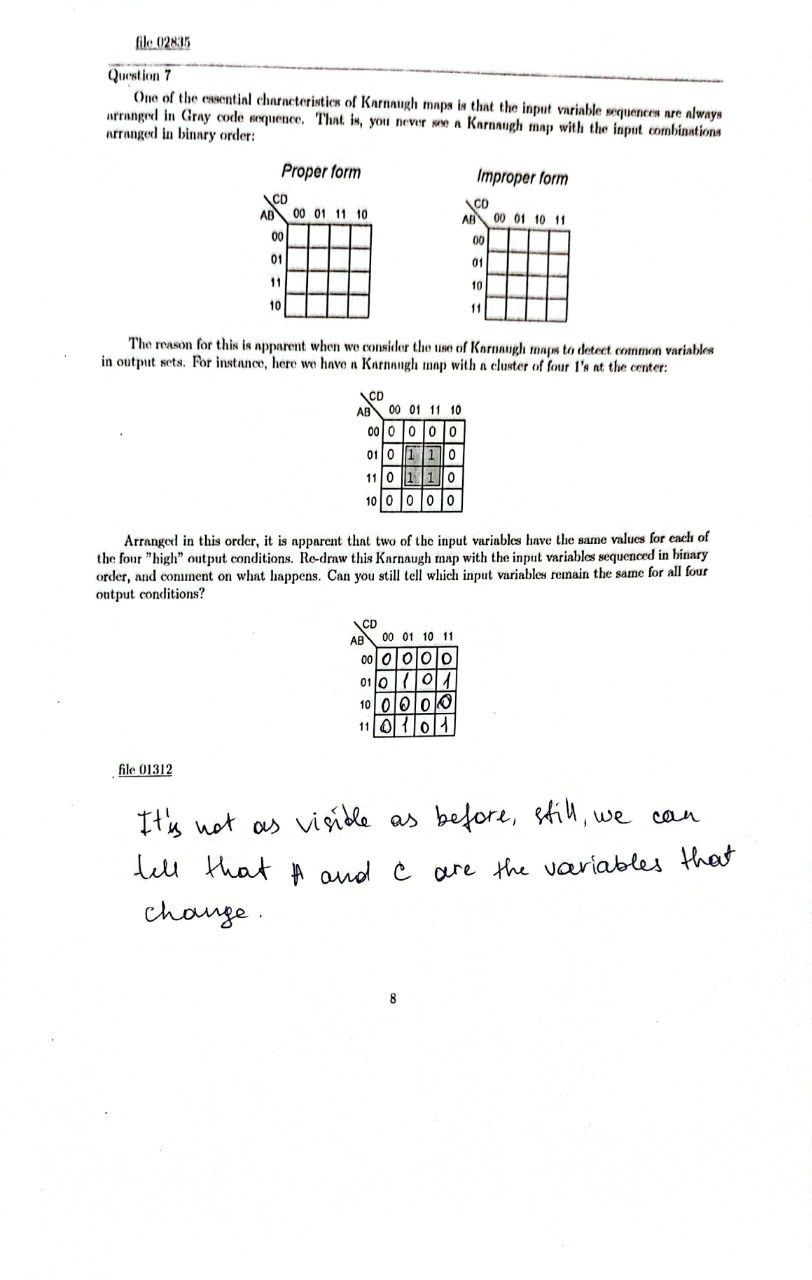 file 02835
Question 7
One of the essential characteristics of Karnaugh maps is that the input variable sequences are always
arranged in Gray code sequence. That is, you never see a Karnaugh map with the input combinations
arranged in binary order:
Proper form
Improper form
CD
AB 00 01 11 10
00
01
11
10
CD
AB 00 01 10 11
00
01
10
11
The reason for this is apparent when we consider the use of Karnaugh maps to detect common variables
in output sets. For instance, here we have a Karnaugh map with a cluster of four 1's at the center:
CD
AB 00 01 11 10
00 0 0 0 0
01 0 1 1 0
11 0 1 1 0
10 0 0 0 0
Arranged in this order, it is apparent that two of the input variables have the same values for each of
the four "high" output conditions. Re-draw this Karnaugh map with the input variables sequenced in binary
order, and comment on what happens. Can you still tell which input variables remain the same for all four
output conditions?
CD
AB 00 01 10 11
00 0 0 0 0
01 0 1 0 1
10 0 0 0 0
11 0 1 0 1
file 01312
It's not as visible as before, still, we can
tell that A and C are the variables that
change.
8